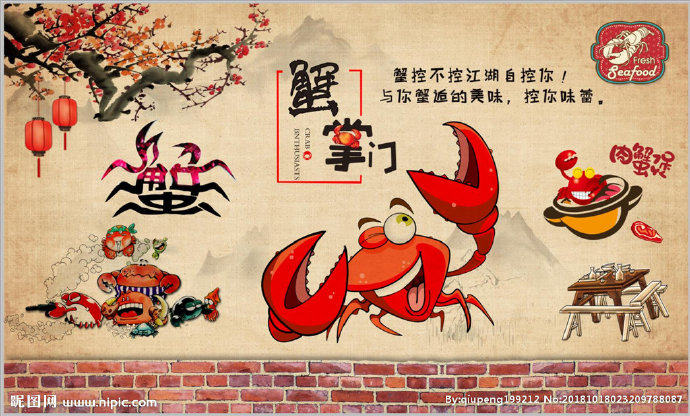 蟹控不控江湖自控你！
与你蟹逅的美味，控你味蕾。
Fresh
Seafood
蟹
掌门
CRAB
ENTHUSIASTS
蟹
肉蟹煲
昵图网 www.nipic.com
By:qiupeng199212 No:20181018023209788087